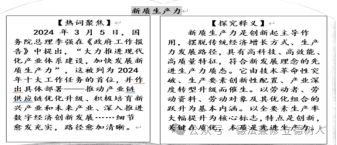 新质生产力
【热词聚焦】
2024 年 3 月 5 日，国
务院总理李强在《政府工作报
告》中提出，“大力推进现代
化产业体系建设，加快发展新
质生产力”，这被列为2024
年十大工作任务的首位，并作
出具体部署——推动产业链
供应链优化升级、积极培育新
兴产业和未来产业、深入推进
数字经济创新发展……细节
愈发充实，路径愈加清晰。
【探究释义】
新质生产力是创新起主导作
用，摆脱传统经济增长方式、生产
力发展路径，具有高科技、高效能、
高质量特征，符合新发展理念的先
进生产力质态。它由技术革命性突
破、生产要素创新性配置、产业深
度转型升级而催生，以劳动者、劳
动资料、劳动对象及其优化组合的
跃升为基本内涵，以全要素生产率
大幅提升为核心标志，特点是创新，
关键在质优，本质是先进生产力。